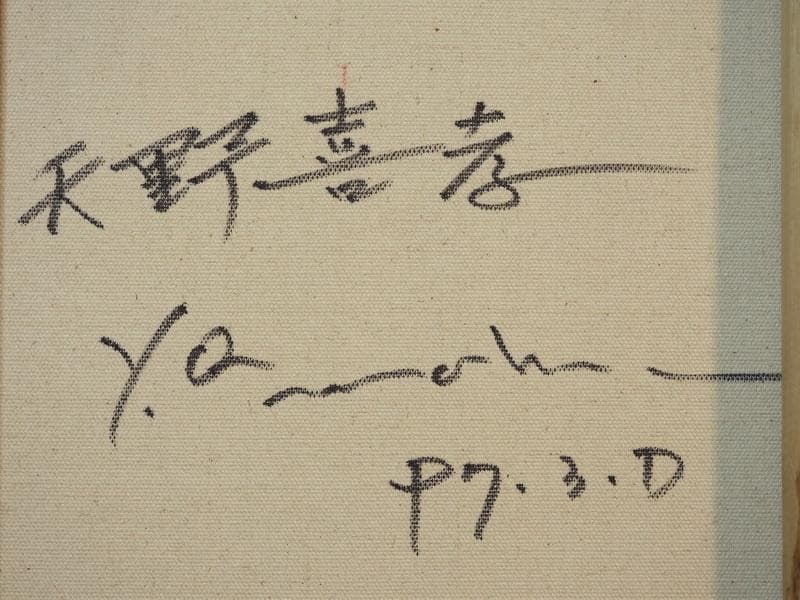 天野喜孝
Y. Amano
P7.3.D